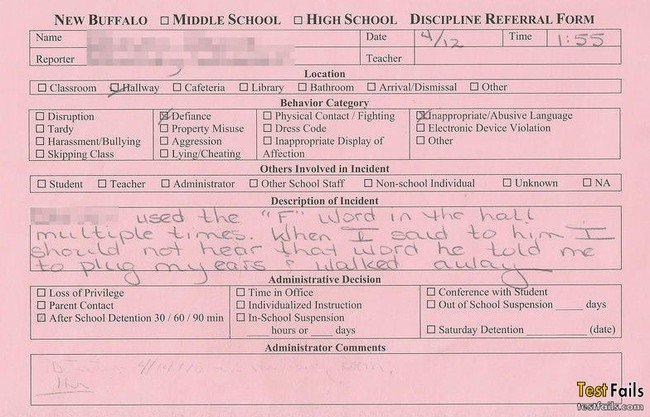 NEW BUFFALO ☐ MIDDLE SCHOOL ☐ HIGH SCHOOL DISCIPLINE REFERRAL FORM
Name Date 4/12 Time 1:55
Reporter Teacher
Location
☐ Classroom ☑ Hallway ☐ Cafeteria ☐ Library ☐ Bathroom ☐ Arrival/Dismissal ☐ Other
Behavior Category
☐ Disruption ☒ Defiance ☐ Physical Contact / Fighting ☒ Inappropriate/Abusive Language
☐ Tardy ☐ Property Misuse ☐ Dress Code ☐ Electronic Device Violation
☐ Harassment/Bullying ☐ Aggression ☐ Inappropriate Display of ☐ Other
☐ Skipping Class ☐ Lying/Cheating Affection
Others Involved in Incident
☐ Student ☐ Teacher ☐ Administrator ☐ Other School Staff ☐ Non-school Individual ☐ Unknown ☐ NA
Description of Incident
used the "F" word in the hall
multiple times. When I said to him I
should not hear that word he told me
to plug my ears & walked away
Administrative Decision
☐ Loss of Privilege ☐ Time in Office ☐ Conference with Student
☐ Parent Contact ☐ Individualized Instruction ☐ Out of School Suspension ____ days
☒ After School Detention 30 / 60 / 90 min ☐ In-School Suspension
____ hours or ____ days ☐ Saturday Detention ____ (date)
Administrator Comments
TestFails
testfails.com